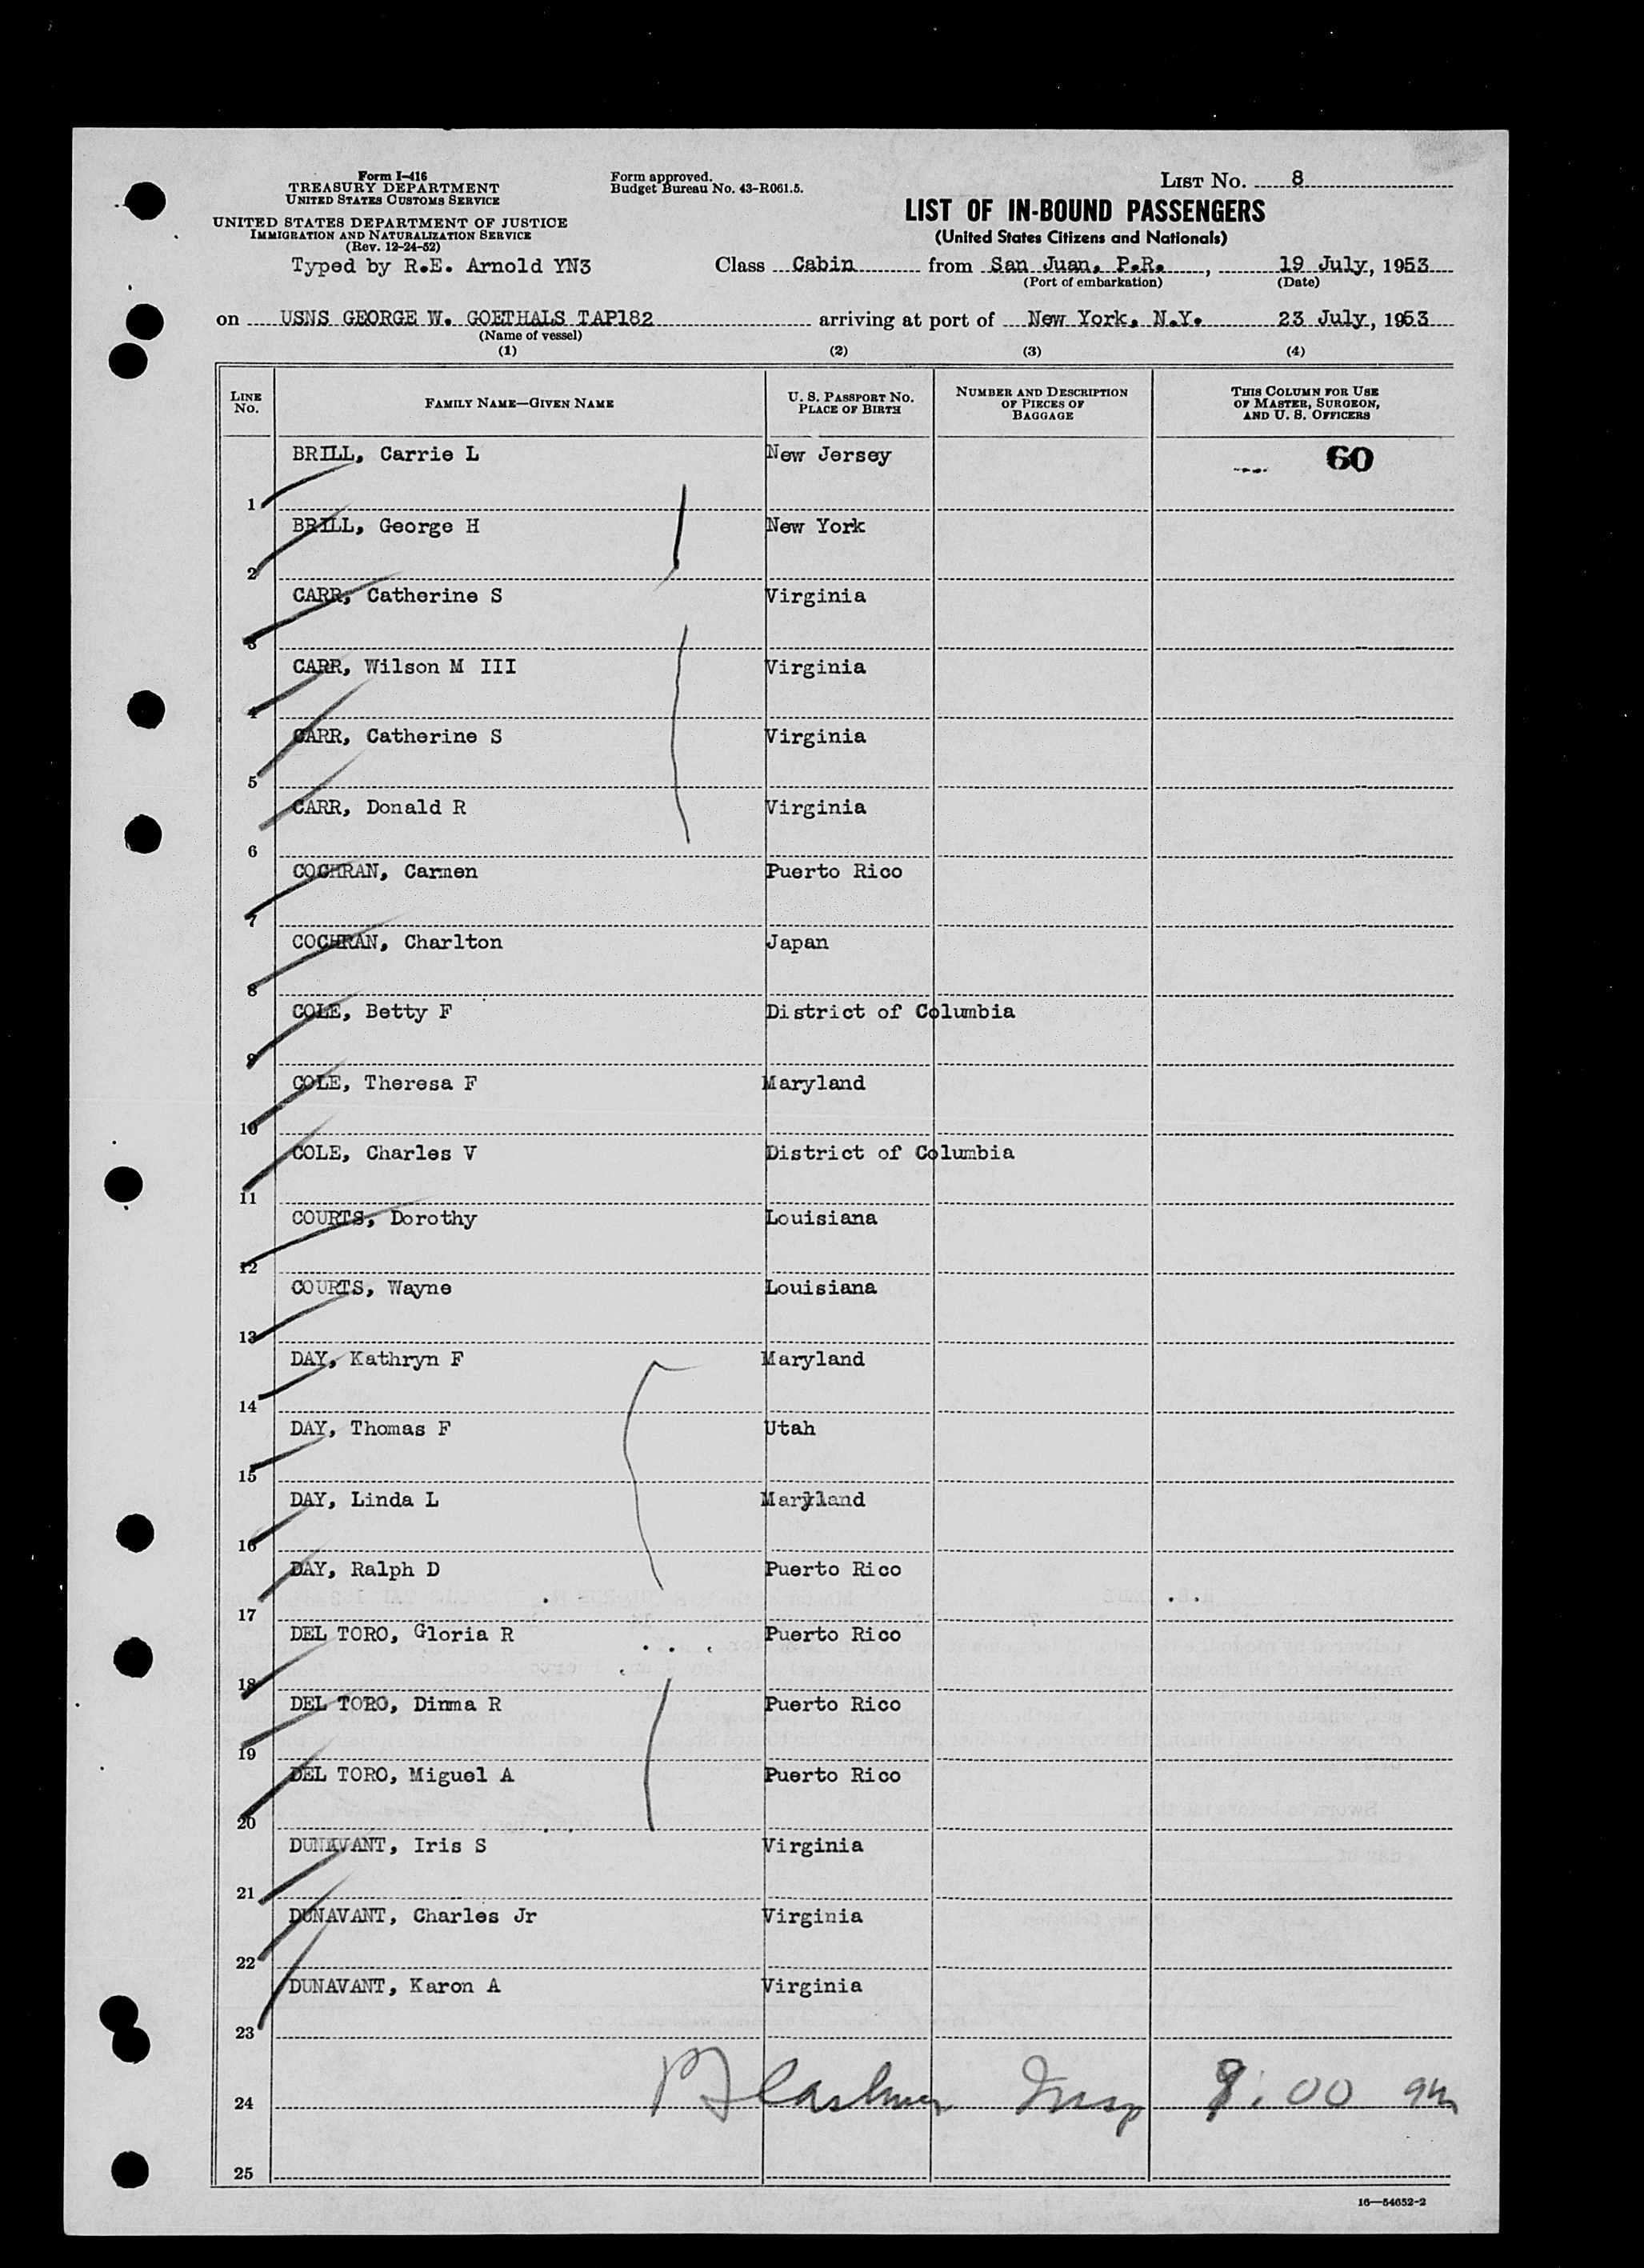 Form I-416
TREASURY DEPARTMENT
UNITED STATES CUSTOMS SERVICE
UNITED STATES DEPARTMENT OF JUSTICE
IMMIGRATION AND NATURALIZATION SERVICE
(Rev. 12-24-52)
Typed by R.E. Arnold YN3
Form approved.
Budget Bureau No. 43-R061.5.
LIST NO. 8
LIST OF IN-BOUND PASSENGERS
(United States Citizens and Nationals)
Class Cabin from San Juan, P.R., 19 July, 1953
(Port of embarkation) (Date)
on USNS GEORGE W. GOETHALS TAP182 arriving at port of New York, N.Y. 23 July, 1953
(Name of vessel)
(1) (2) (3) (4)
LINE NO. FAMILY NAME—GIVEN NAME U. S. PASSPORT NO. PLACE OF BIRTH NUMBER AND DESCRIPTION OF PIECES OF BAGGAGE THIS COLUMN FOR USE OF MASTER, SURGEON, AND U. S. OFFICERS
1 BRILL, Carrie L New Jersey 60
2 BRILL, George H New York
3 CARR, Catherine S Virginia
4 CARR, Wilson M III Virginia
5 CARR, Catherine S Virginia
6 CARR, Donald R Virginia
7 COCHRAN, Carmen Puerto Rico
8 COCHRAN, Charlton Japan
9 COLE, Betty F District of Columbia
10 COLE, Theresa F Maryland
11 COLE, Charles V District of Columbia
12 COURTS, Dorothy Louisiana
13 COURTS, Wayne Louisiana
14 DAY, Kathryn F Maryland
15 DAY, Thomas F Utah
16 DAY, Linda L Maryland
17 DAY, Ralph D Puerto Rico
18 DEL TORO, Gloria R Puerto Rico
19 DEL TORO, Dinma R Puerto Rico
20 DEL TORO, Miguel A Puerto Rico
21 DUNAVANT, Iris S Virginia
22 DUNAVANT, Charles Jr Virginia
23 DUNAVANT, Karon A Virginia
24 Insp :00 am
25
16—54652-2